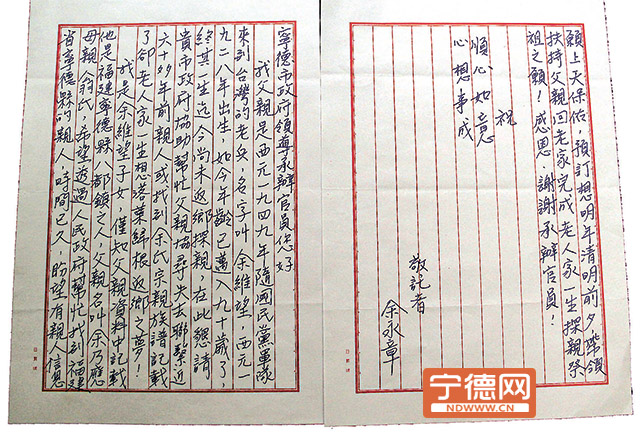 寧德市政府領導承辦官員您好
我父親是西元一九四九年隨國民黨軍隊
來到台灣的老兵，名字叫余維望，西元一
九二八年出生，如今年齡已邁入九十歲了，
終其一生迄今尚未返鄉探親，在此懇請
貴市政府協助幫忙父親協尋失去聯繫近
六十多年前親人或找到余氏宗親族譜記載
了卻老人家一生想落葉歸根返鄉之夢！
我是余維望子女，僅知父親資料中記載
他是福建寧德縣八都鎮之人，父親名叫余乃應
母親翁氏，希望透過人民政府幫忙找到福建
省寧德縣的親人，時間已久，盼望有親人信息
願上天保佑，預訂想明年清明前夕帶領
扶持父親回老家完成老人家一生探親祭
祖之願！感恩，謝謝承辦官員！
祝
順心如意
心想事成
敬託者
余永章
宁德网
NDWWW.CN